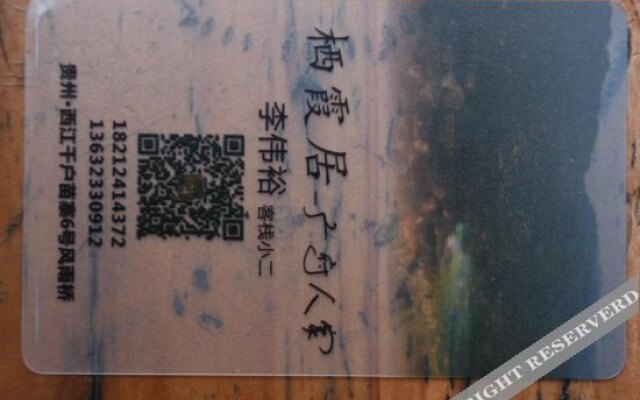 栖霞居-广府人家
李伟裕 客栈小二
18212414372
13632330912
贵州·西江千户苗寨6号风雨桥
RIGHT RESERVERD